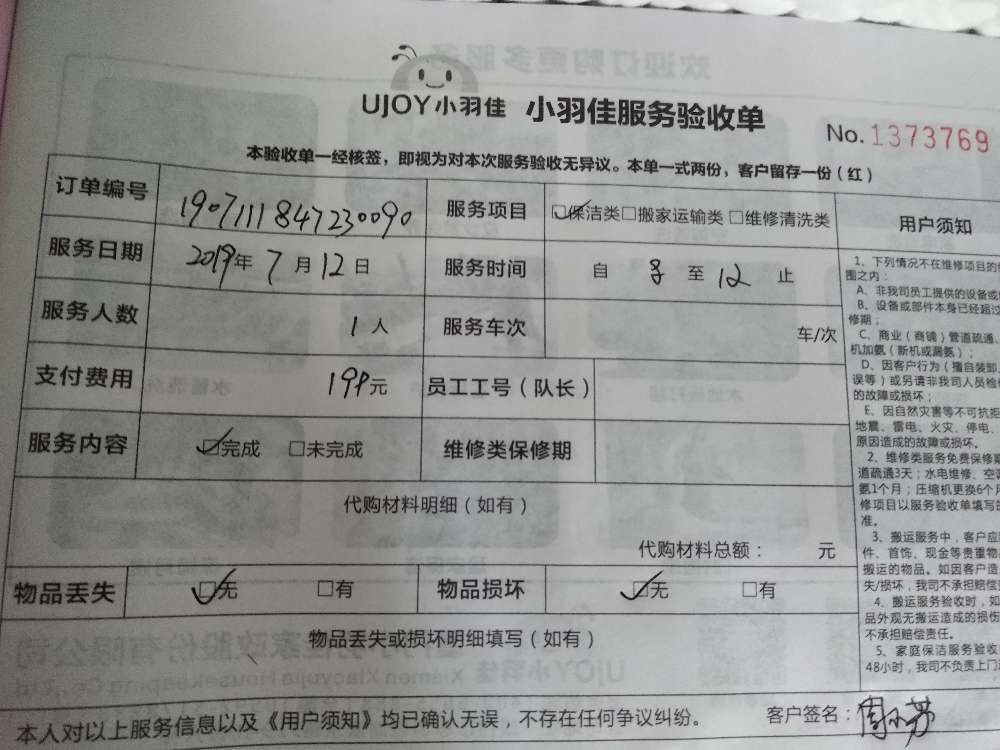 UJOY小羽佳 小羽佳服务验收单
No.1373769
本验收单一经核签，即视为对本次服务验收无异议。本单一式两份，客户留存一份（红）
订单编号 1907111847230090 服务项目 ☑保洁类□搬家运输类□维修清洗类
服务日期 2019年7月12日 服务时间 自 8 至 12 止
服务人数 1人 服务车次 车/次
支付费用 198元 员工工号（队长）
服务内容 ☑完成 □未完成 维修类保修期
代购材料明细（如有）
代购材料总额： 元
物品丢失 ☑无 □有 物品损坏 ☑无 □有
物品丢失或损坏明细填写（如有）
本人对以上服务信息以及《用户须知》均已确认无误，不存在任何争议纠纷。 客户签名：
用户须知
1、下列情况不在维修项目的
围之内：
A、非我司员工提供的设备或
B、设备或部件本身已经超过
修期；
C、商业（商铺）管道疏通、
机加氨（新机或漏氨）；
D、因客户行为（擅自装卸、
误等）或另请非我司人员检
的故障或损坏；
E、因自然灾害等不可抗拒
地震、雷电、火灾、停电、
原因造成的故障或损坏。
2、维修类服务免费保修期
道疏通3天；水电维修、空
氨1个月；压缩机更换6个月
修项目以服务验收单填写
准。
3、搬运服务中，客户应
件、首饰、现金等贵重物
搬运的物品。如因客户造
失/损坏，我司不承担赔偿
4、搬运服务验收时，如
品外观无搬运造成的损伤
不承担赔偿责任。
5、家庭保洁服务验收
48小时，我司不负责上门